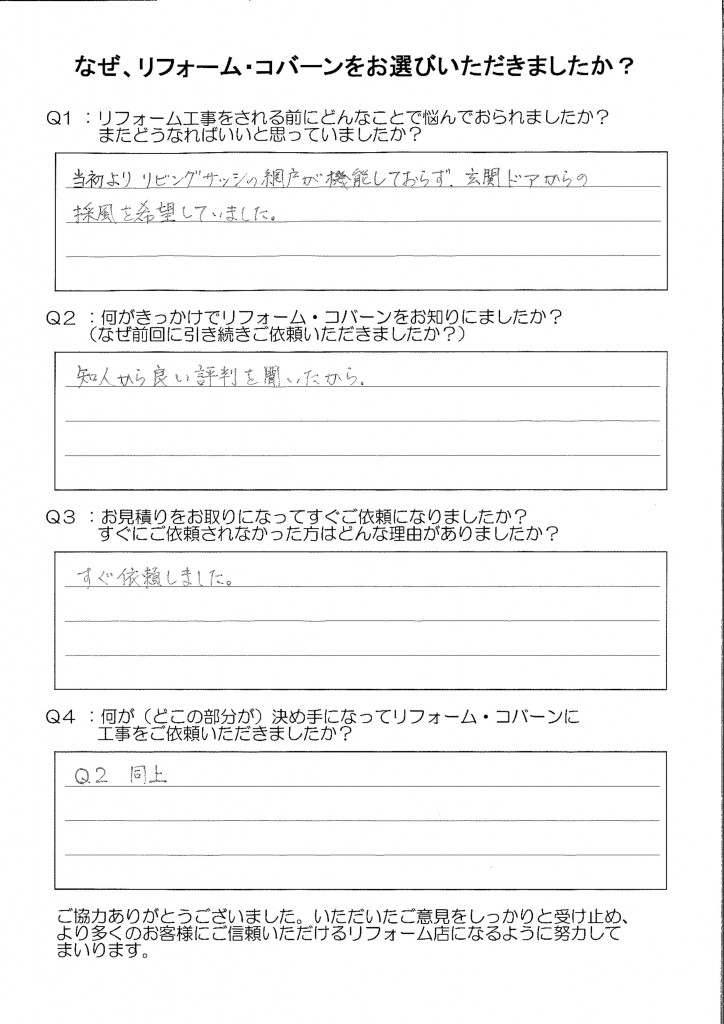 なぜ、リフォーム・コバーンをお選びいただきましたか？
Q1 ：リフォーム工事をされる前にどんなことで悩んでおられましたか？
またどうなればいいと思っていましたか？
当初よりリビングサッシの網戸が機能しておらず、玄関ドアからの
採風を希望していました。
Q2 ：何がきっかけでリフォーム・コバーンをお知りにましたか？
（なぜ前回に引き続きご依頼いただきましたか？）
知人から良い評判を聞いたから。
Q3 ：お見積りをお取りになってすぐご依頼になりましたか？
すぐにご依頼されなかった方はどんな理由がありましたか？
すぐ依頼しました。
Q4 ：何が（どこの部分が）決め手になってリフォーム・コバーンに
工事をご依頼いただきましたか？
Q.2 同上
ご協力ありがとうございました。いただいたご意見をしっかりと受け止め、
より多くのお客様にご信頼いただけるリフォーム店になるように努力して
まいります。